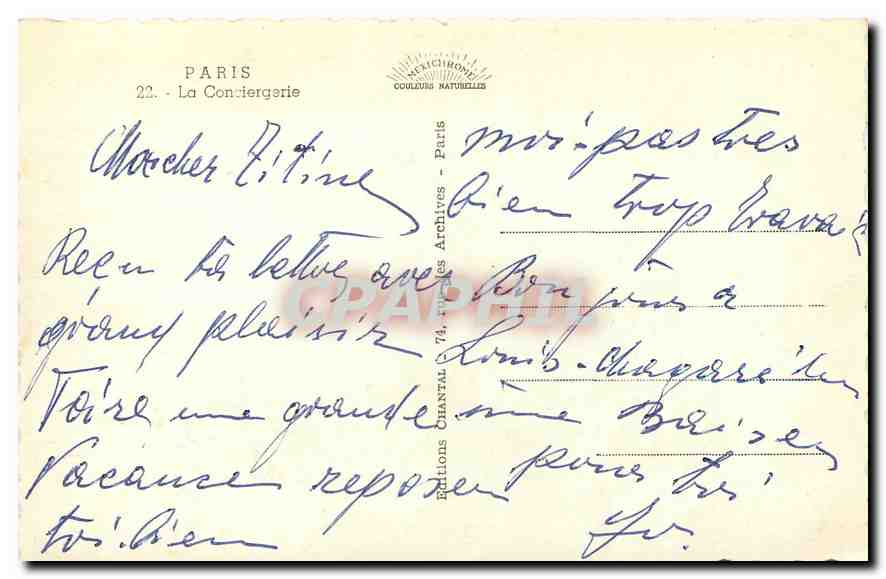 PARIS
22. - La Conciergerie
MEXICHROME
COULEURS NATURELLES
Editions CHANTAL - 74, rue des Archives - Paris
CPAPHIL
Moncher Titine
Reçu ta lettre, avec
grand plaisir
Faire une grande
Vacance reposer
toi. bien
moi-pas tres
bien trop Travai
Bonjour a
Louis
une Baiser
pour toi